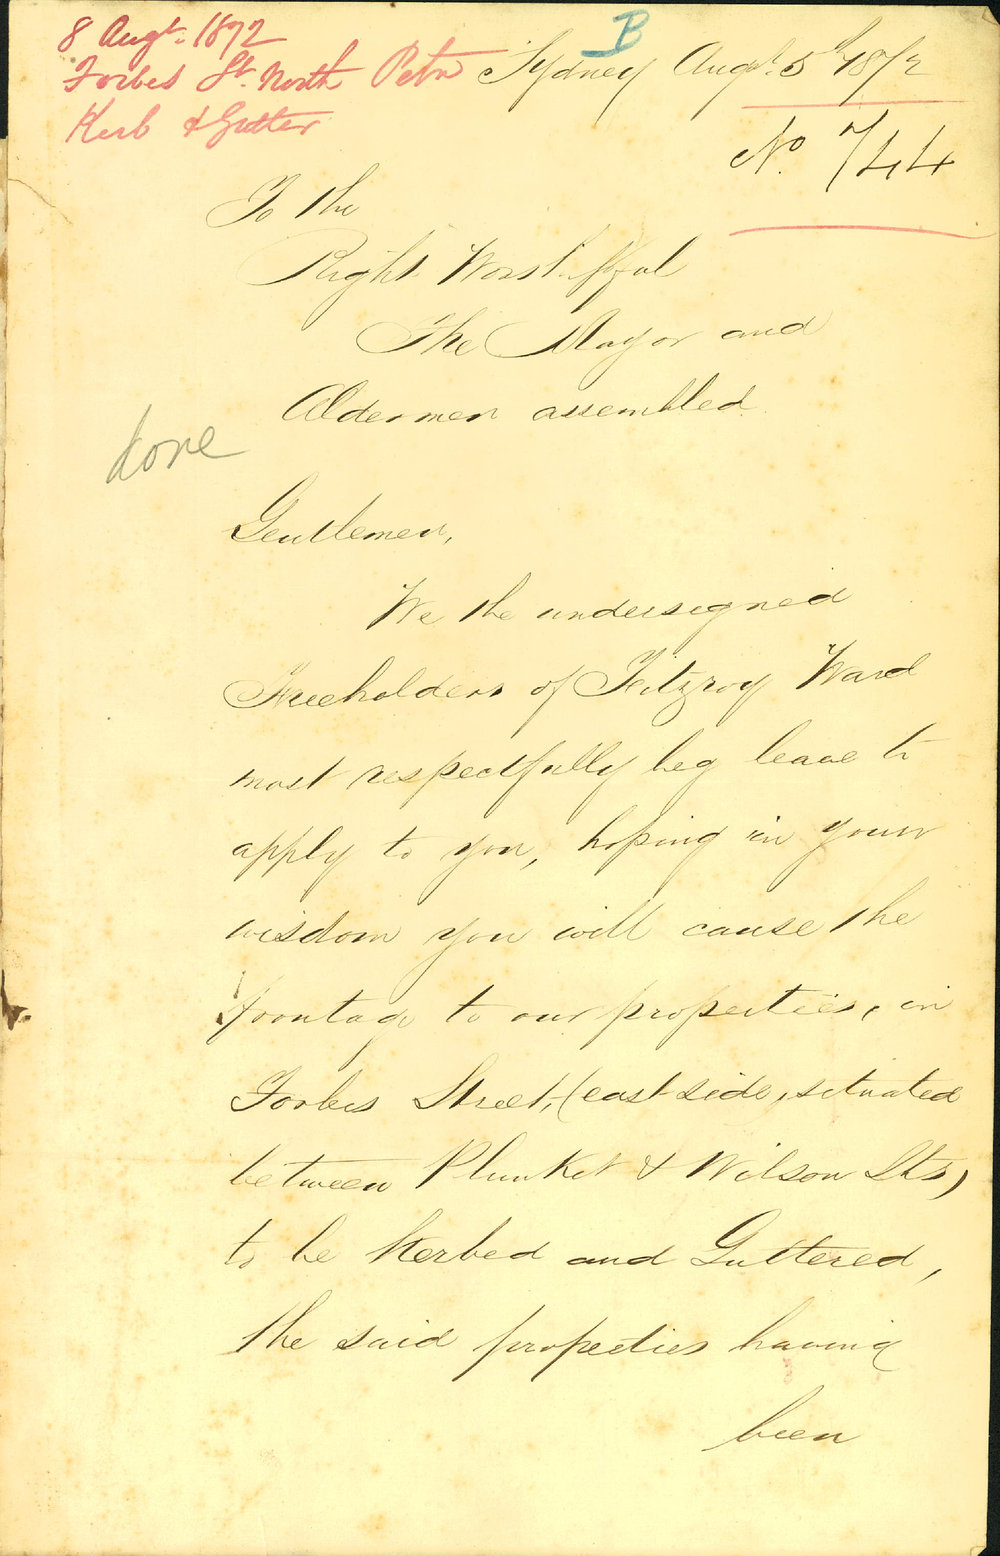 8 Augt. 1872
Forbes St. North Petn
Kerb & Gutter
B
Sydney Augt. 5th 1872
No. 744
To the
Right Worshipful
The Mayor and
Aldermen assembled.
done
Gentlemen,
We the undersigned
Freeholders of Fitzroy Ward
most respectfully beg leave to
apply to you, hoping in your
wisdom you will cause the
frontage to our properties, in
Forbes Street, (east side, situated
between Plunket & Wilson Sts)
to be Kerbed and Guttered,
the said properties having
been